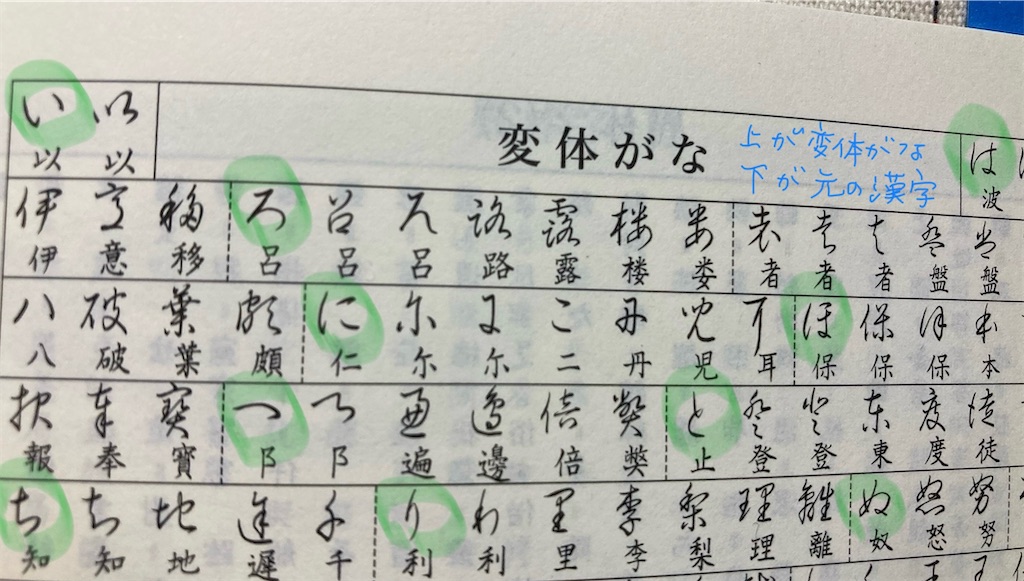 い 以
以 以
変体がな
上が変体がな
下が元の漢字
は
波
伊 移 ろ 呂 路 露 楼
伊 意 移 呂 呂 呂 路 露 楼 娄 者 者 者 盤 盤
八 破 葉 頗 に 尓 こ 丹 児 耳 ほ 保 本
八 破 葉 頗 仁 尓 尓 二 丹 児 耳 保 保 保 本
報 奉 寶 へ 遍 邊 倍 と 登 東 度 徒
報 奉 寶 阝 阝 遍 邊 倍 止 登 登 東 度 徒
ち 地 遅 千 り 里 李 梨 理 離 ぬ 怒 努
知 知 地 遅 千 利 利 里 李 梨 理 離 奴 怒 努